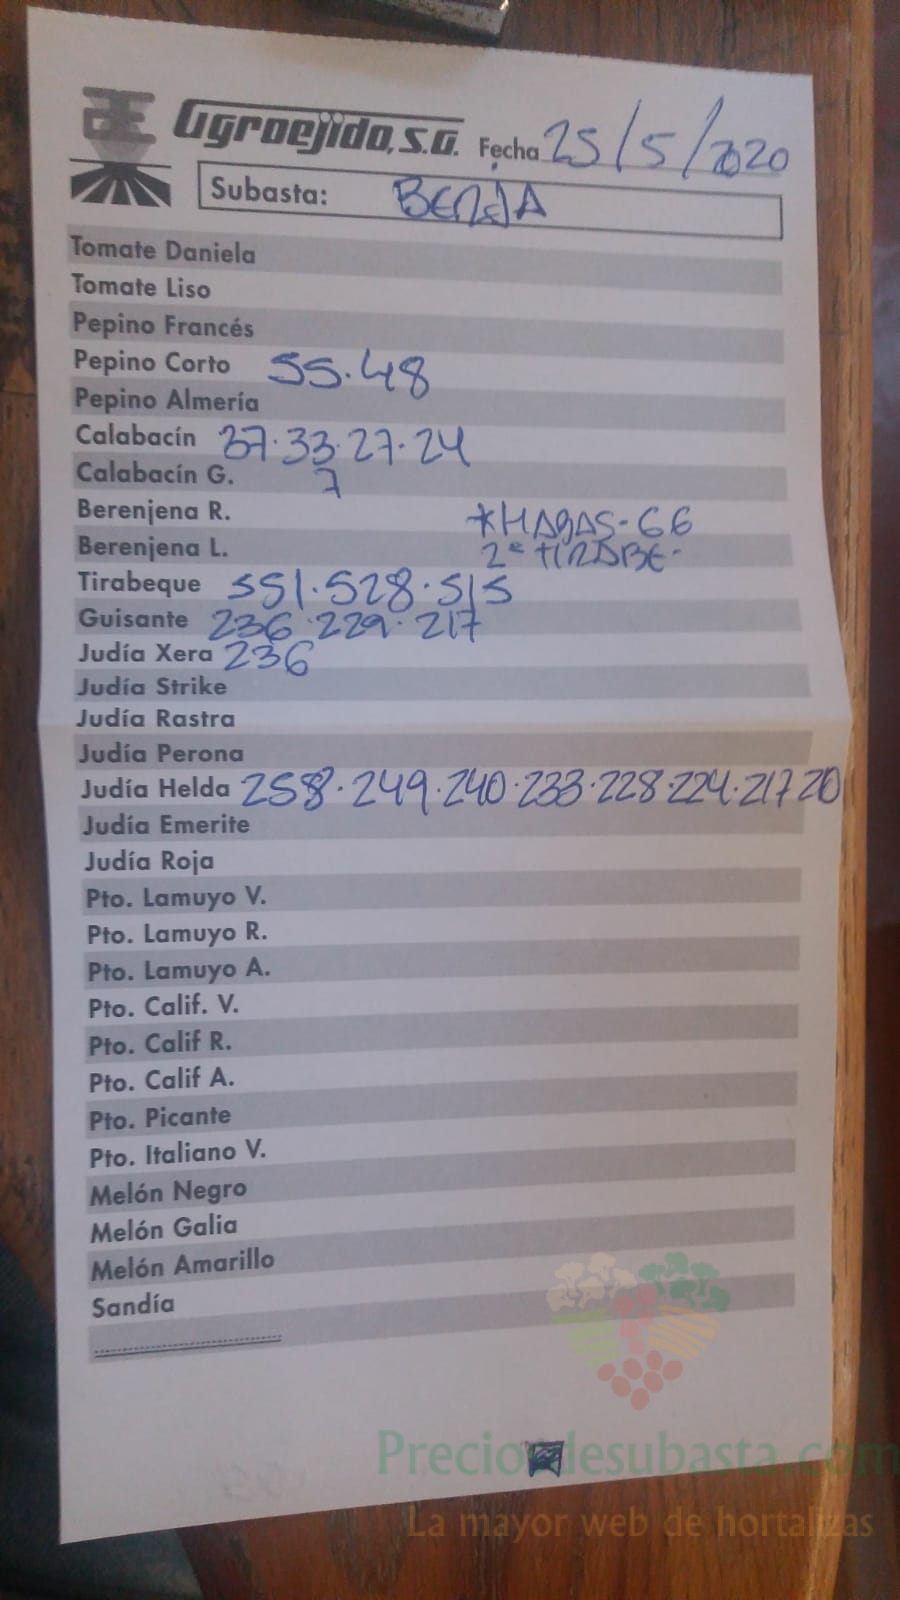 Agroejido, S.A. Fecha 25/5/2020
Subasta: BERJA
Tomate Daniela
Tomate Liso
Pepino Francés
Pepino Corto 55.48
Pepino Almería
Calabacín 37.33.27.24
Calabacín G. 7
Berenjena R. *HABAS-66
Berenjena L. 2ª TIRABE-
Tirabeque 551.528.515
Guisante 236.229.217
Judía Xera 236
Judía Strike
Judía Rastra
Judía Perona
Judía Helda 258.249.240.233.228.224.217 20
Judía Emerite
Judía Roja
Pto. Lamuyo V.
Pto. Lamuyo R.
Pto. Lamuyo A.
Pto. Calif. V.
Pto. Calif R.
Pto. Calif A.
Pto. Picante
Pto. Italiano V.
Melón Negro
Melón Galia
Melón Amarillo
Sandía
Preciosdesubasta.com
La mayor web de hortalizas